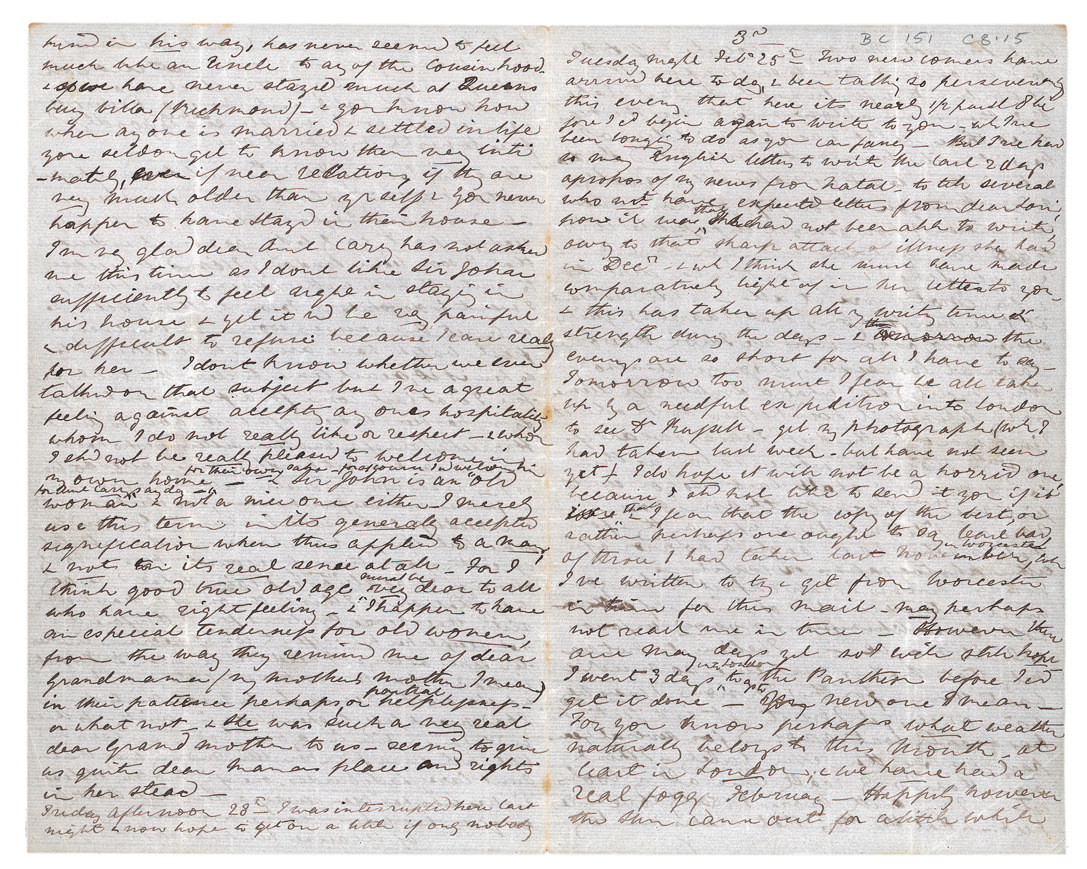 kind in his way, has never seemed to feel
much like an Uncle to any of the Cousinhood
& we have never stayed much at Queens
bury Villa (Richmond) - & you know how
when any one is married & settled in life
you seldom get to know them very inti
-mately, even if near relations, if they are
very much older than yrself & you never
happen to have stayed in their house -
I'm very glad dear Aunt Cary has not asked
me this time as I dont like Sir John
sufficiently to feel right in staying in
his house & yet it wd be very painful
& difficult to refuse because I care really
for her - I dont know whether we ever
talked on that subject but I've a great
feeling against accepting any ones hospitality
whom I do not really like or respect - & whom
I shd not be really pleased to welcome in
for their own sake - for of course I'd welcome him
my own home - & Sir John is an "old
for Aunt Cary's any day -
woman" & not a nice one either I merely
use this term in its generally accepted
signification when thus applied to a man,
& not in its real sense at all - For I
think good true old age must be very dear to all
who have right feeling - & I happen to have
an especial tenderness for old women,
from the way they remind me of dear
Grandmama (my mother's mother I mean)
in their patience perhaps, or partial helplessness -
or what not, & she was such a very real
dear Grandmother to us - seeming to give
us quite dear mamas place and rights
in her stead -
Friday afternoon 28th I was interrupted here last
night & now hope to get on a little if only nobody
3rd
BC 151 C8.15
Tuesday night Feb 25th Two new comers have
arrived here to day, & been talking so perseveringly
this evening that here its nearly 1/2 past 8 be
fore I'd begin again to write to you - wh I've
been longing to do as you can fancy - But I've had
so many English letters to write the last 2 days
apropos of my news from Natal - to tell several
who not have expected letters from dear
how it was that she had not been able to write
owing to that sharp attack of illness she had
in Decr - & wh I think she must have made
comparatively light of in her letter to you
& this has taken up all my writing time &
strength during the days - & the
evenings are so short for all I have to say -
Tomorrow too must I fear be all taken
up by a needful expedition into London
to see Dr Russell - get my photograph (wh I
had taken last week - but have not seen
yet & I do hope it will not be a horrid one
because I shd not like to send it you if it
is - & I fear that the copy of the best, or
rather perhaps one ought to say least bad
of those I had taken last November, in Worcester wh
I've written to try & get from Worcester
in time for this mail - may perhaps
not reach me in time - However there
are many days yet so I will still hope
I went 3 days to the Pantheon before I'd
get it done - new one I mean -
For you know perhaps what weather
naturally belongs to this Month, at
least in London, & we have had a
real foggy February - Happily however
the sun came out for a little while